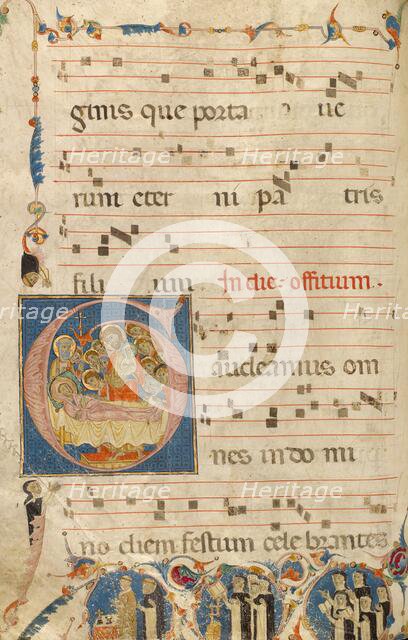 ginis que porta ue
rum eter ni pa tris
fili um In die offitium.
Gaudeamus om
nes in do mi
no diem festum cele brantes
Heritage Heritage
Heritage Heritage
Heritage Heritage
Heritage Heritage